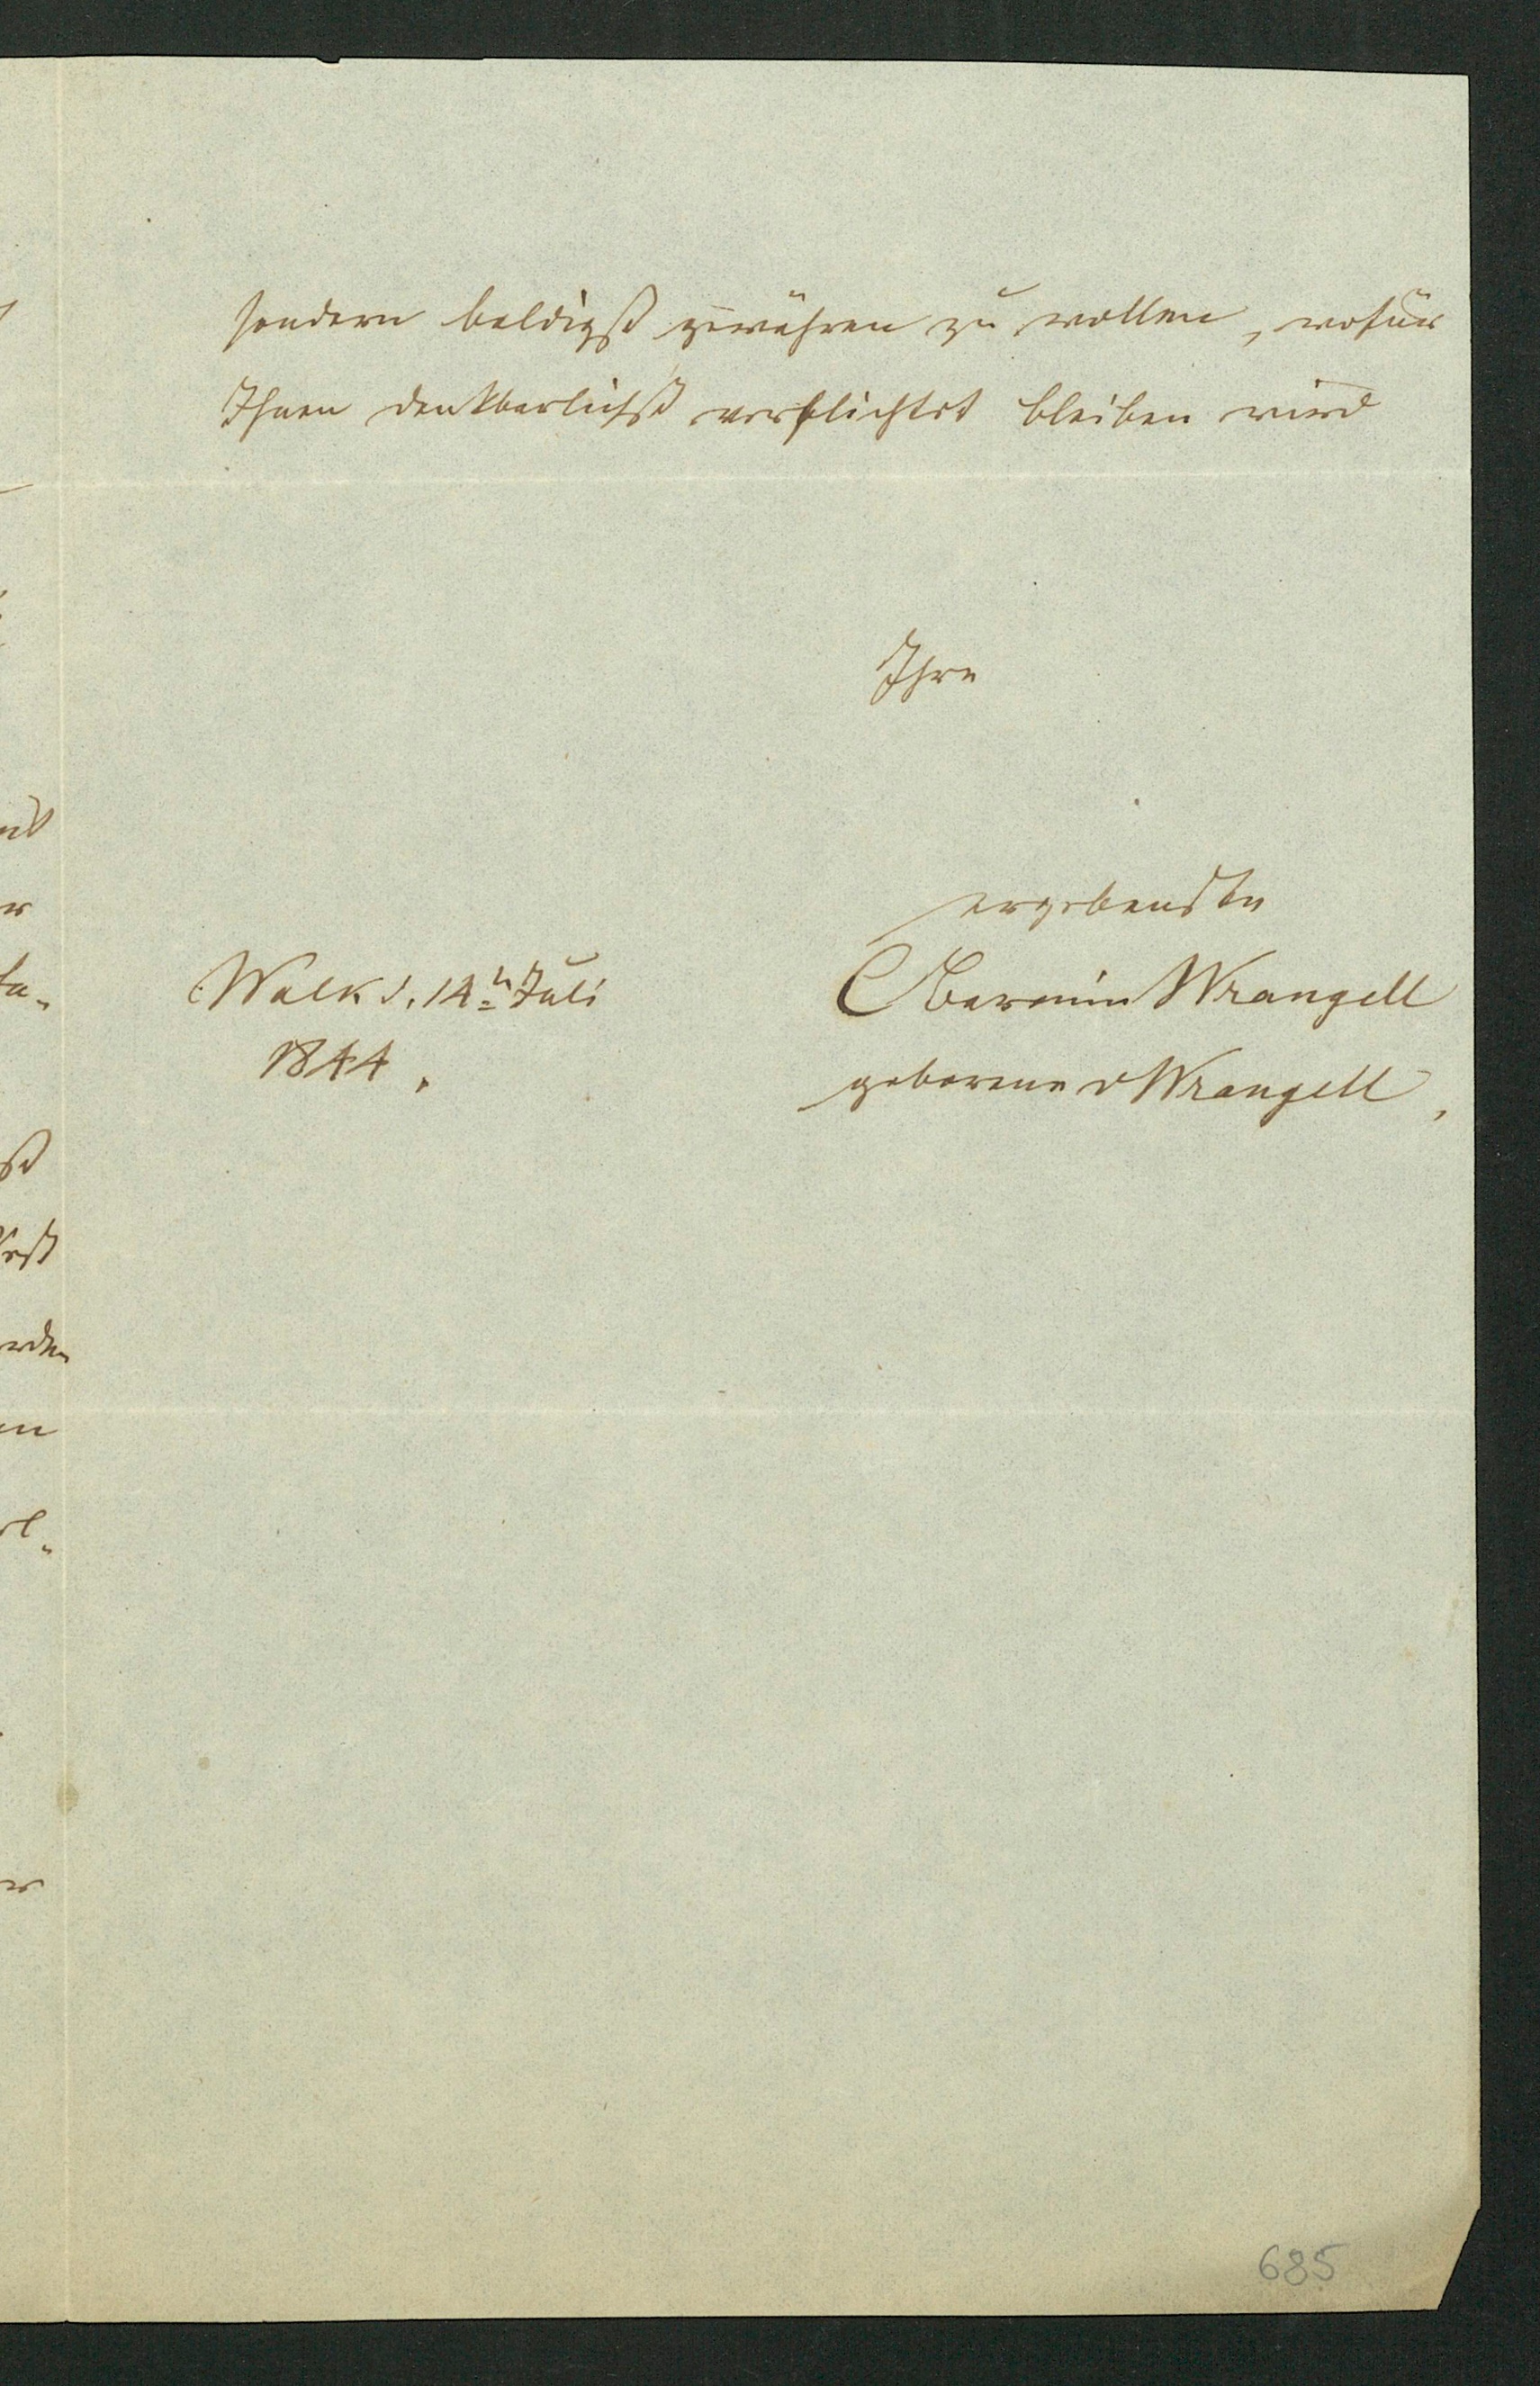 sondern baldigst gewähren zu wollen, wofür
Ihnen dankbarlichst verpflichtet bleiben wird
Ihre
ergebenste
Walk d. 14n Juli
1844.
C Baronin Wrangell
geborene v Wrangell,
685